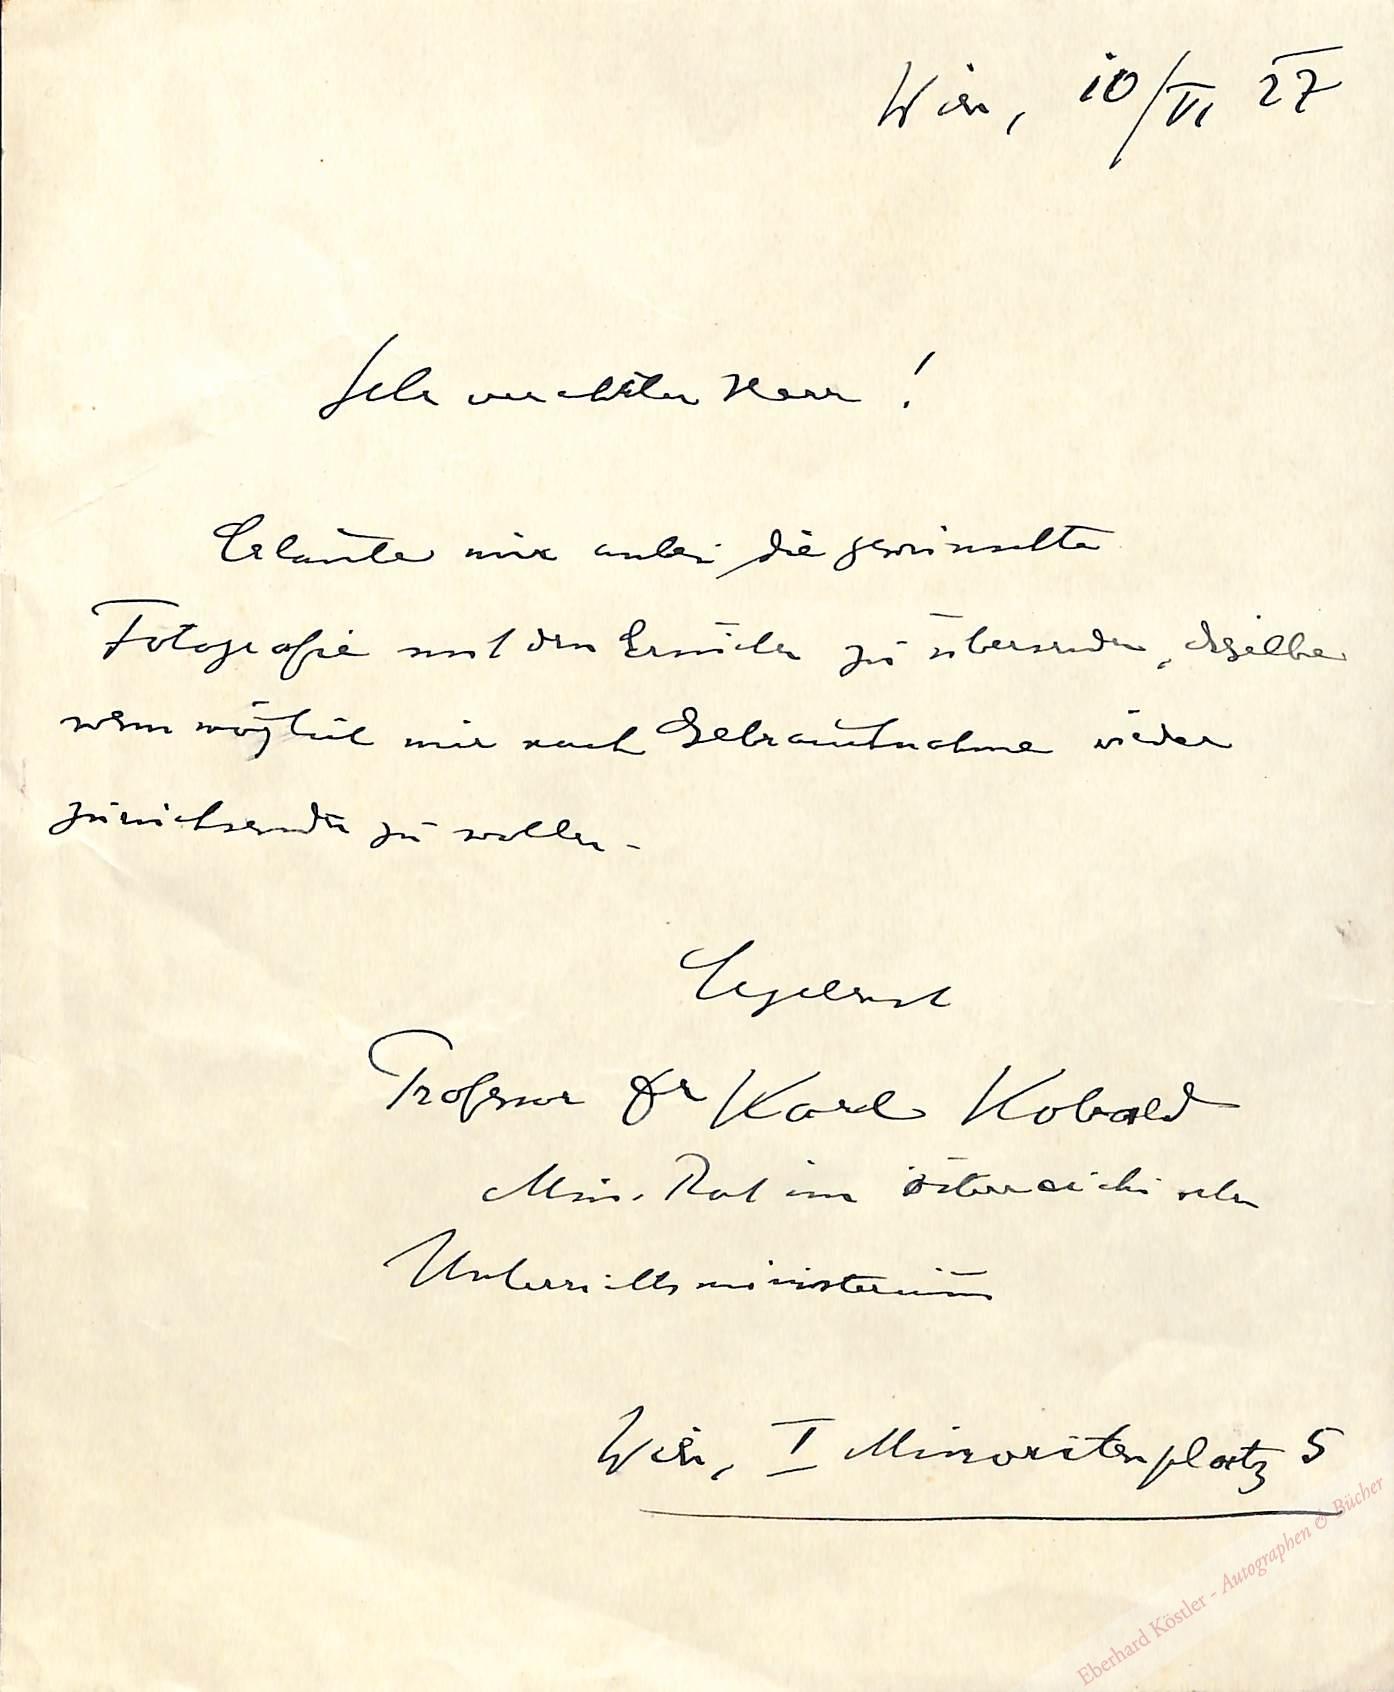 Wien, 10/VI 27
Sehr verehrter Herr!
Erlaube mir anbei die gewünschte
Fotografie mit dem Ersuchen zu übersenden, dieselbe
wenn möglich mir nach Gebrauchnahme wieder
zurücksenden zu wollen -
Ergebenst
Professor Dr Karl Kobald
Min. Rat im österreichischen
Unterrichtsministerium
Wien, I Minoritenplatz 5
Eberhard Köstler - Autographen & Bücher